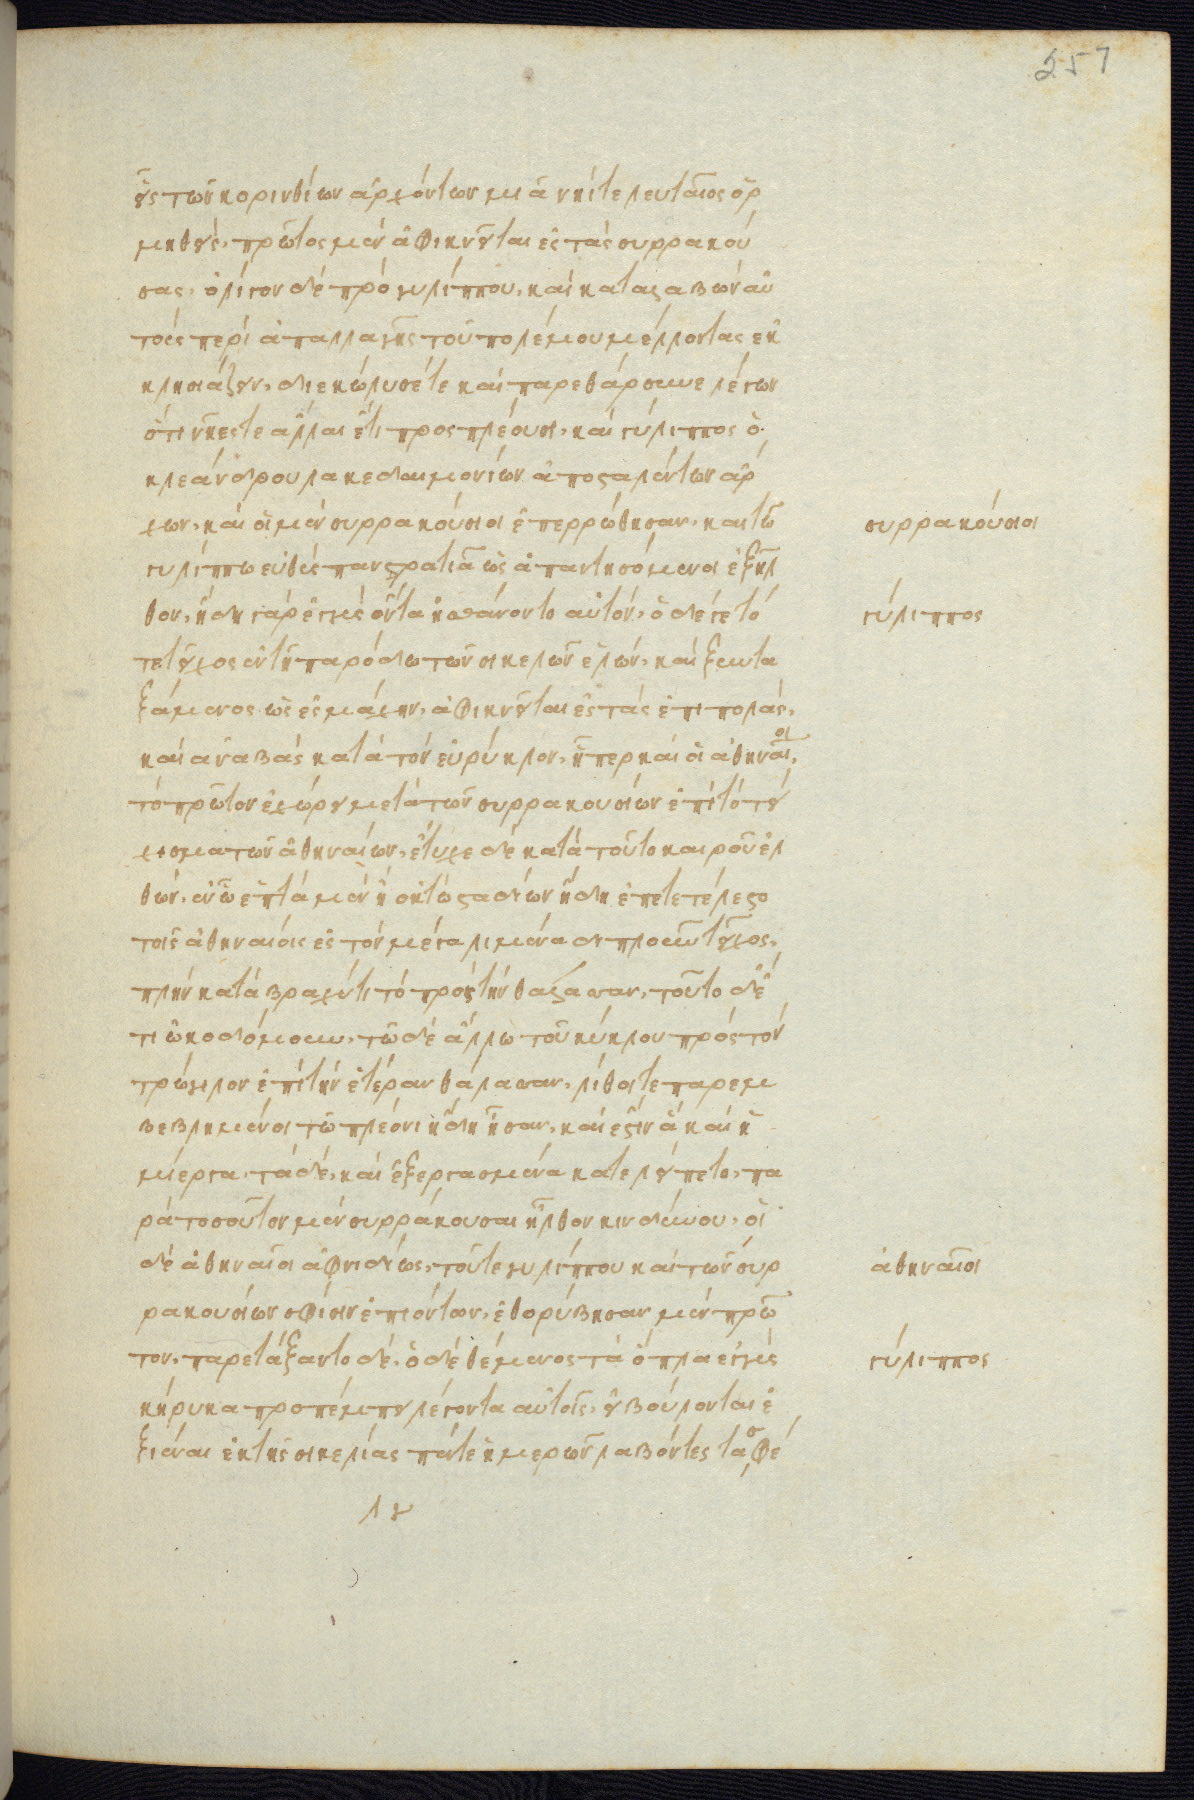 257
εἷς τῶν κορινθίων ἀρχόντων μιᾷ νηῒ τελευταῖος ὁρ
μηθεὶς, πρῶτος μὲν ἀφικνεῖται ἐς τὰς συρρακού
σας, ὀλίγον δὲ πρὸ γυλίππου, καὶ καταλαβὼν αὐ
τοὺς περὶ ἀπαλλαγῆς τοῦ πολέμου μέλλοντας ἐκ
κλησιάζειν, διεκώλυσέ τε καὶ παρεθάρσυνε λέγων
ὅτι νῆές τε ἄλλαι ἔτι προςπλέουσι, καὶ γύλιππος ὁ
κλεάνδρου λακεδαιμονίων ἀποστειλάντων ἄρ
χων, καὶ οἱ μὲν συρρακούσιοι ἐπερρώθησαν, καὶ τῶ
γυλίππω εὐθὺς πανστρατιᾶ ὡς ἀπαντησόμενοι ἐξῆλ
θον, ἤδη γὰρ ἐγγὺς ὄντα ἠσθάνοντο αὐτόν, ὁ δὲ γε τό
τε τεῖχος ἐν τῆ παρόδω τῶν σικελῶν ἑλών, καὶ ξυντα
ξάμενος ὡς ἐς μάχην, ἀφικνεῖται ἐς τὰς ἐπιπολάς,
καὶ ἀναβὰς κατὰ τὸν εὐρύηλον, ἧπερ καὶ οἱ ἀθηναῖοι,
τὸ πρῶτον ἐχώρει μετὰ τῶν συρρακουσίων ἐπὶ τὸ τεί
χισμα τῶν ἀθηναίων, ἔτυχε δὲ κατὰ τοῦτο καιροῦ ἐλ
θών, ἐν ᾧ ἑπτὰ μὲν ἢ ὀκτὼ σταδίων ἤδη ἐπετετέλεστο
τοῖς ἀθηναίοις ἐς τὸν μέγα λιμένα διπλοῦν τεῖχος,
πλὴν κατὰ βραχύ τι τὸ πρὸς τὴν θάλασσαν, τοῦτο δ' ἔ
τι ὠκοδόμουν, τῶ δὲ ἄλλω τοῦ κύκλου πρὸς τὸν
τρώγιλον ἐπὶ τὴν ἑτέραν θάλασσαν, λίθοι τε παρεμ
βεβλημένοι τῶ πλέονι ἤδη ἦσαν, καὶ ἔστιν ἃ καὶ ἡ
μίεργα, τὰ δὲ, καὶ ἐξεργασμένα κατελείπετο, πα
ρὰ τοσοῦτον μὲν συρράκουσαι ἦλθον κινδύνου, οἱ
δὲ ἀθηναῖοι αἰφνιδίως, τοῦ τε γυλίππου καὶ τῶν συρ
ρακουσίων σφίσιν ἐπιόντων, ἐθορύβησαν μὲν πρῶ
τον, παρετάξαντο δέ, ὁ δὲ θέμενος τὰ ὅπλα ἐγγὺς
κήρυκα προπέμπει λέγοντα αὐτοῖς, εἰ βούλονται ἐ
ξιέναι ἐκ τῆς σικελίας πέντε ἡμερῶν λαβόντες τὰ σφέ
συρρακούσιοι
γύλιππος
ἀθηναῖοι
γύλιππος